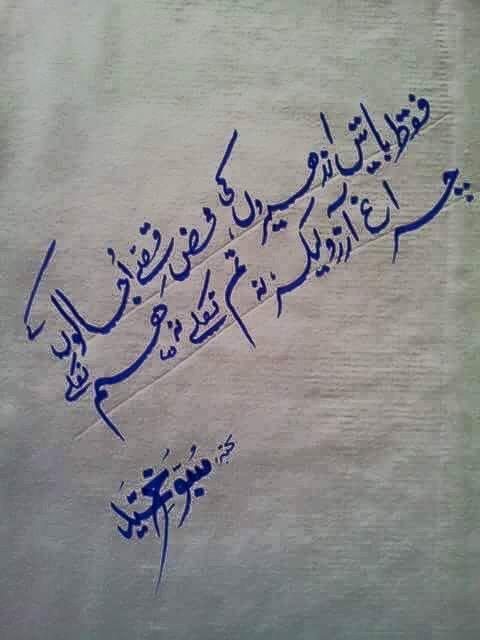 فقط باتیں اندھیروں کی محض قصے اُجالوں کے
چراغِ آرزو لیکر نہ تم نکلے نہ ہم نکلے
کتبہ: